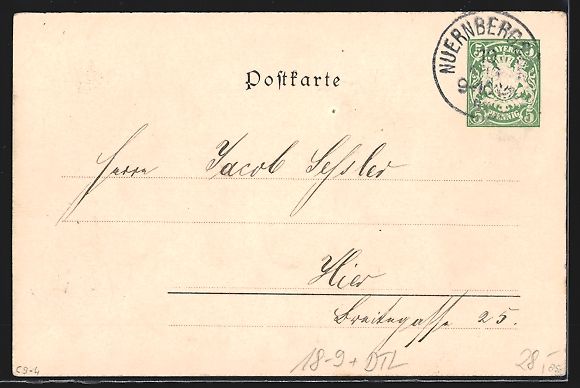 NUERNBERG
BAYERN
5 5
5 PFENNIG 5
Postkarte
Herrn Jacob Sessler
Hier
Breitegasse 25.
C9-4
18-9 + DTL
28,-